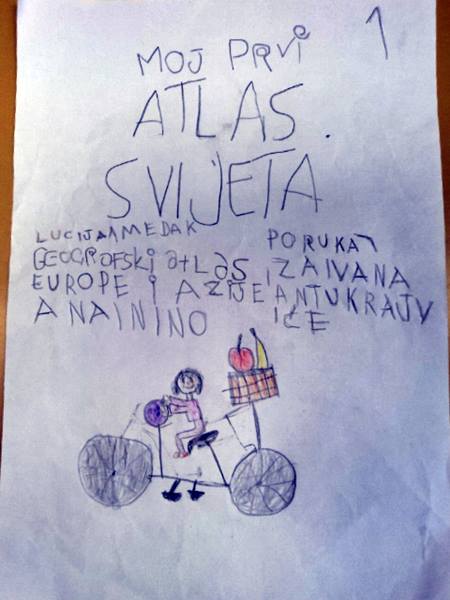 1
MOJ PRVI
ATLAS.
SVIJETA
LUCIJA MEDAK
GEOGRAFSKI atLaS
EUROPE I AZIJE
ANA I NINO
PORUKA
ZA IVANA
ANTU KRAJV
IĆE